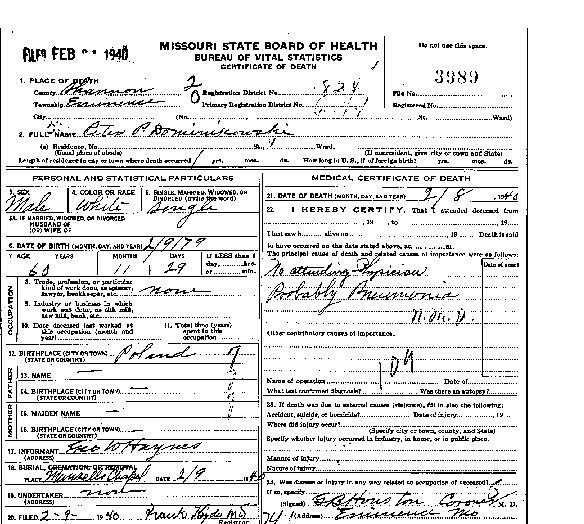 FILED FEB 1940
MISSOURI STATE BOARD OF HEALTH
BUREAU OF VITAL STATISTICS
CERTIFICATE OF DEATH
Do not use this space.
3989
1. PLACE OF DEATH
County Shannon Registration District No. 824 File No.
Township Eminence Primary Registration District No. Registered No.
City (No. St. Ward)
2. FULL NAME Peter P Dominikowski
(a) Residence, No. St., Ward.
(Usual place of abode) (If nonresident, give city or town and State)
Length of residence in city or town where death occurred yrs. mos. ds. How long in U.S., if of foreign birth? yrs. mos. ds.
PERSONAL AND STATISTICAL PARTICULARS
3. SEX 4. COLOR OR RACE 5. SINGLE, MARRIED, WIDOWED, OR DIVORCED (write the word)
Male White Single
5A. IF MARRIED, WIDOWED, OR DIVORCED
HUSBAND OF
(OR) WIFE OF
6. DATE OF BIRTH (MONTH, DAY, AND YEAR) 2/9/79
7. AGE YEARS MONTHS DAYS If LESS than 1 day, hrs. or min.
60 11 29
OCCUPATION
8. Trade, profession, or particular kind of work done, as spinner, sawyer, bookkeeper, etc. none
9. Industry or business in which work was done, as silk mill, saw mill, bank, etc.
10. Date deceased last worked at this occupation (month and year)
11. Total time (years) spent in this occupation
12. BIRTHPLACE (CITY OR TOWN) Poland
(STATE OR COUNTRY)
FATHER
13. NAME —
14. BIRTHPLACE (CITY OR TOWN) —
(STATE OR COUNTRY)
MOTHER
15. MAIDEN NAME —
16. BIRTHPLACE (CITY OR TOWN) —
(STATE OR COUNTRY)
17. INFORMANT Geo W Haynes
(ADDRESS)
18. BURIAL, CREMATION, OR REMOVAL
PLACE Chapel DATE 2/9 1940
19. UNDERTAKER none
(ADDRESS)
20. FILED 2-9- 1940 Frank Hyde MD
Registrar
MEDICAL CERTIFICATE OF DEATH
21. DATE OF DEATH (MONTH, DAY, AND YEAR) 2/8 1940
22. I HEREBY CERTIFY, That I attended deceased from
, 19 , to , 19
I last saw h alive on , 19 Death is said
to have occurred on the date stated above, at m.
The principal cause of death and related causes of importance were as follows:
Date of onset
No attending Physician
Probably Pneumonia
N.M.D.
Other contributory causes of importance:
Name of operation Date of
What test confirmed diagnosis? Was there an autopsy?
23. If death was due to external causes (violence), fill in also the following:
Accident, suicide, or homicide? Date of injury , 19
Where did injury occur?
(Specify city or town, county, and State)
Specify whether injury occurred in industry, in home, or in public place.
Manner of injury
Nature of injury
24. Was disease or injury in any way related to occupation of deceased?
If so, specify
(Signed) Houston Coroner M. D.
(Address) Eminence Mo